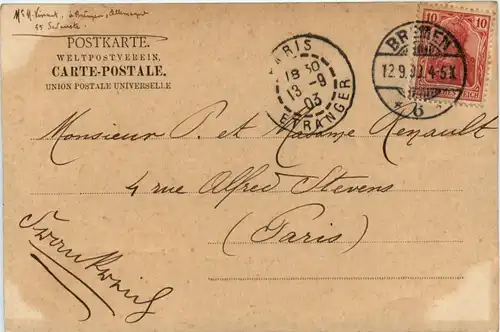 à Brême, Allemagne
POSTKARTE.
WELTPOSTVEREIN.
CARTE-POSTALE.
UNION POSTALE UNIVERSELLE
PARIS
18 30
13 -9
03
ETRANGER
BREMEN
12.9.
4-5
* 6
10 10
REICH
Monsieur P. et Madame Renault
4 rue Alfred Stevens
(Paris)
Frankreich